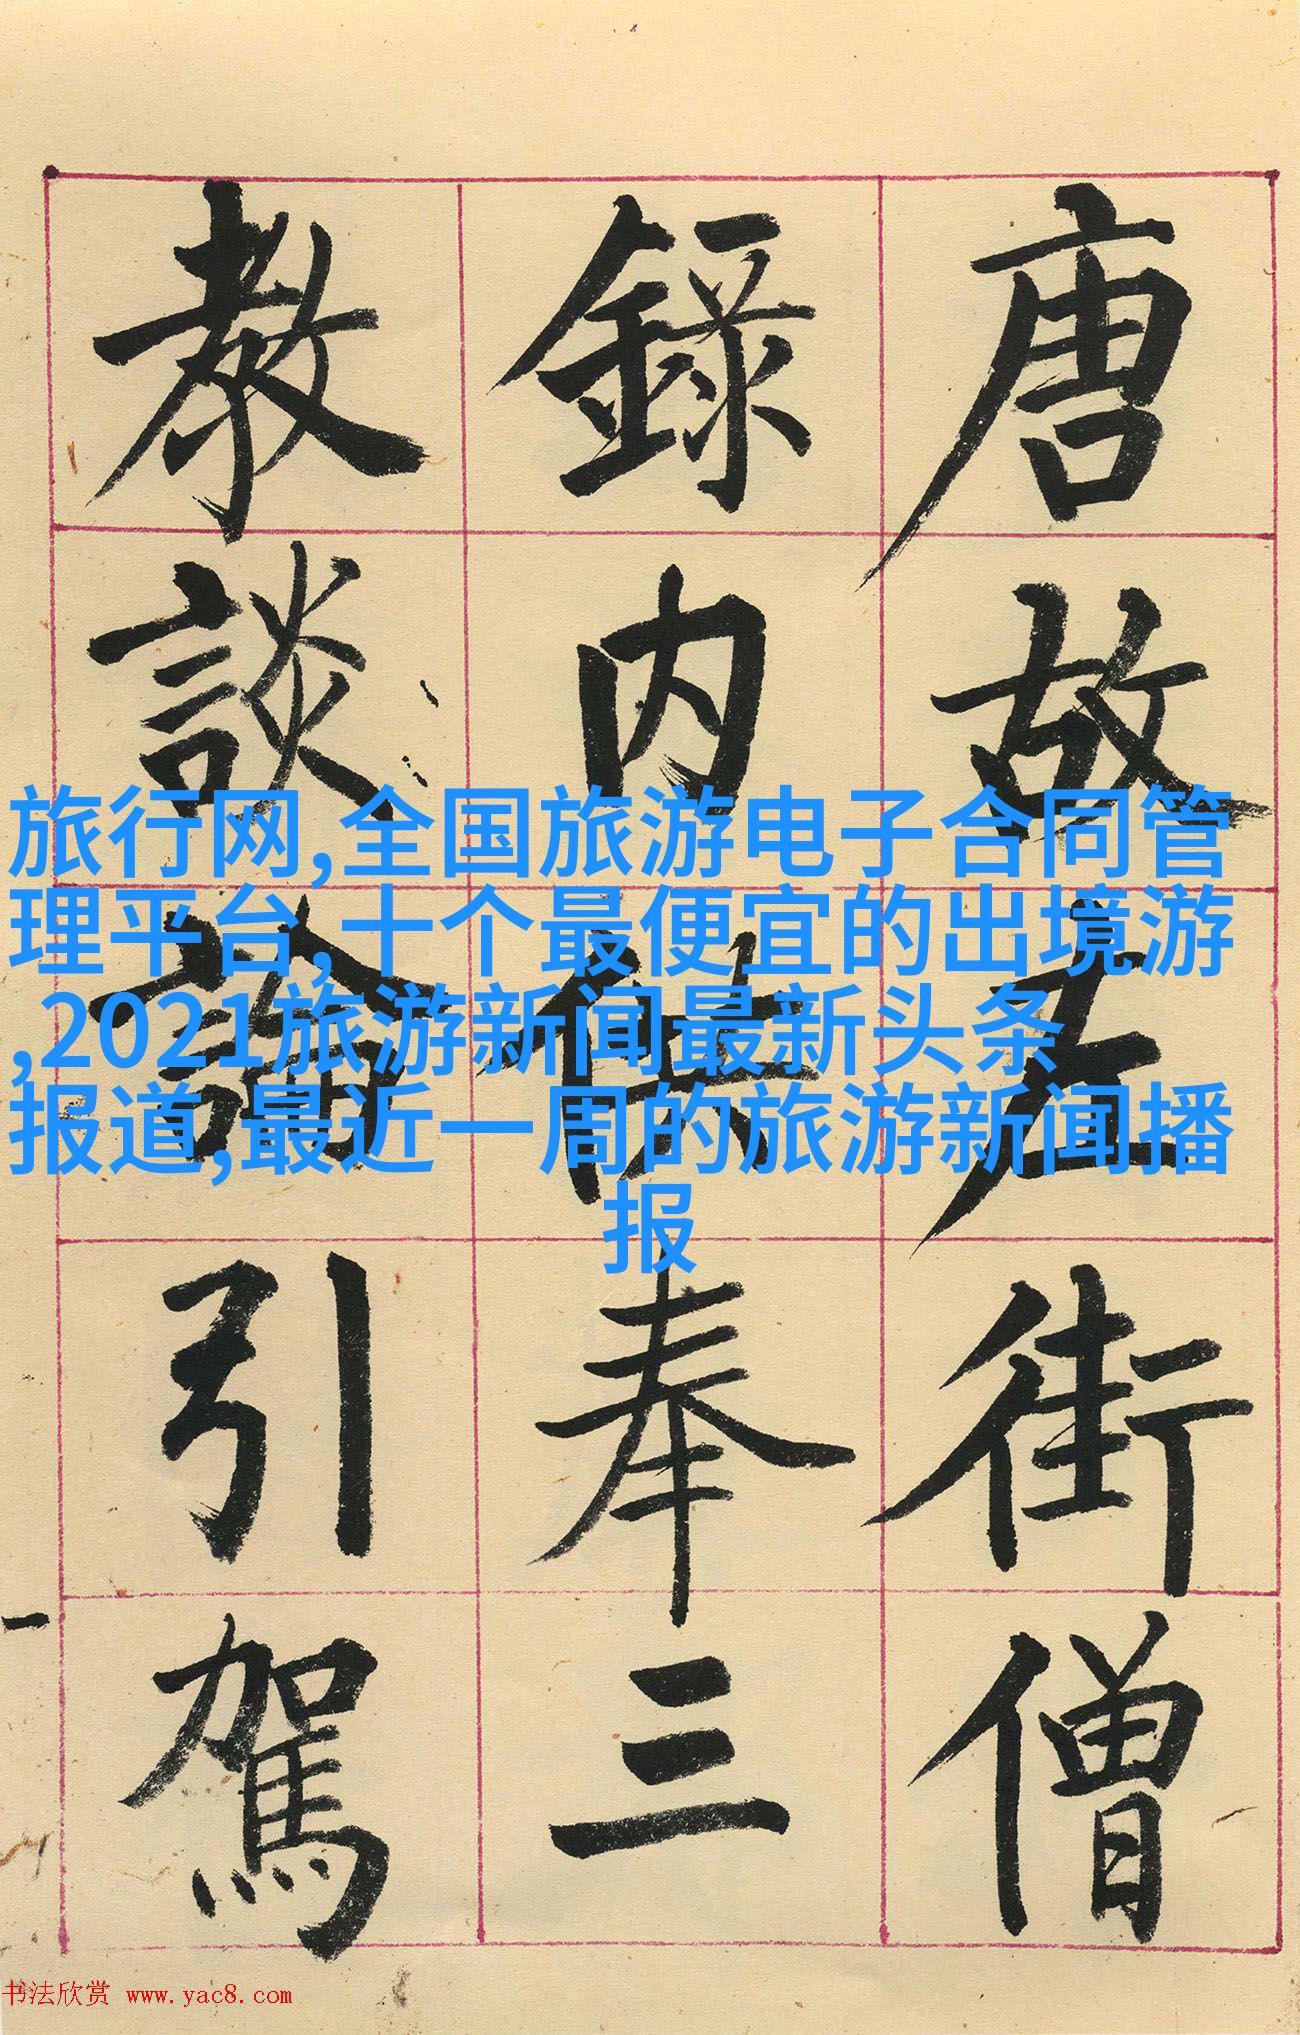 唐故左街僧
錄内供奉三
教談論引駕
旅行网,全国旅游电子合同管
理平台,十个最便宜的出境游
,2021旅游新闻最新头条
报道,最近一周的旅游新闻播
报
书法欣赏 www.yac8.com